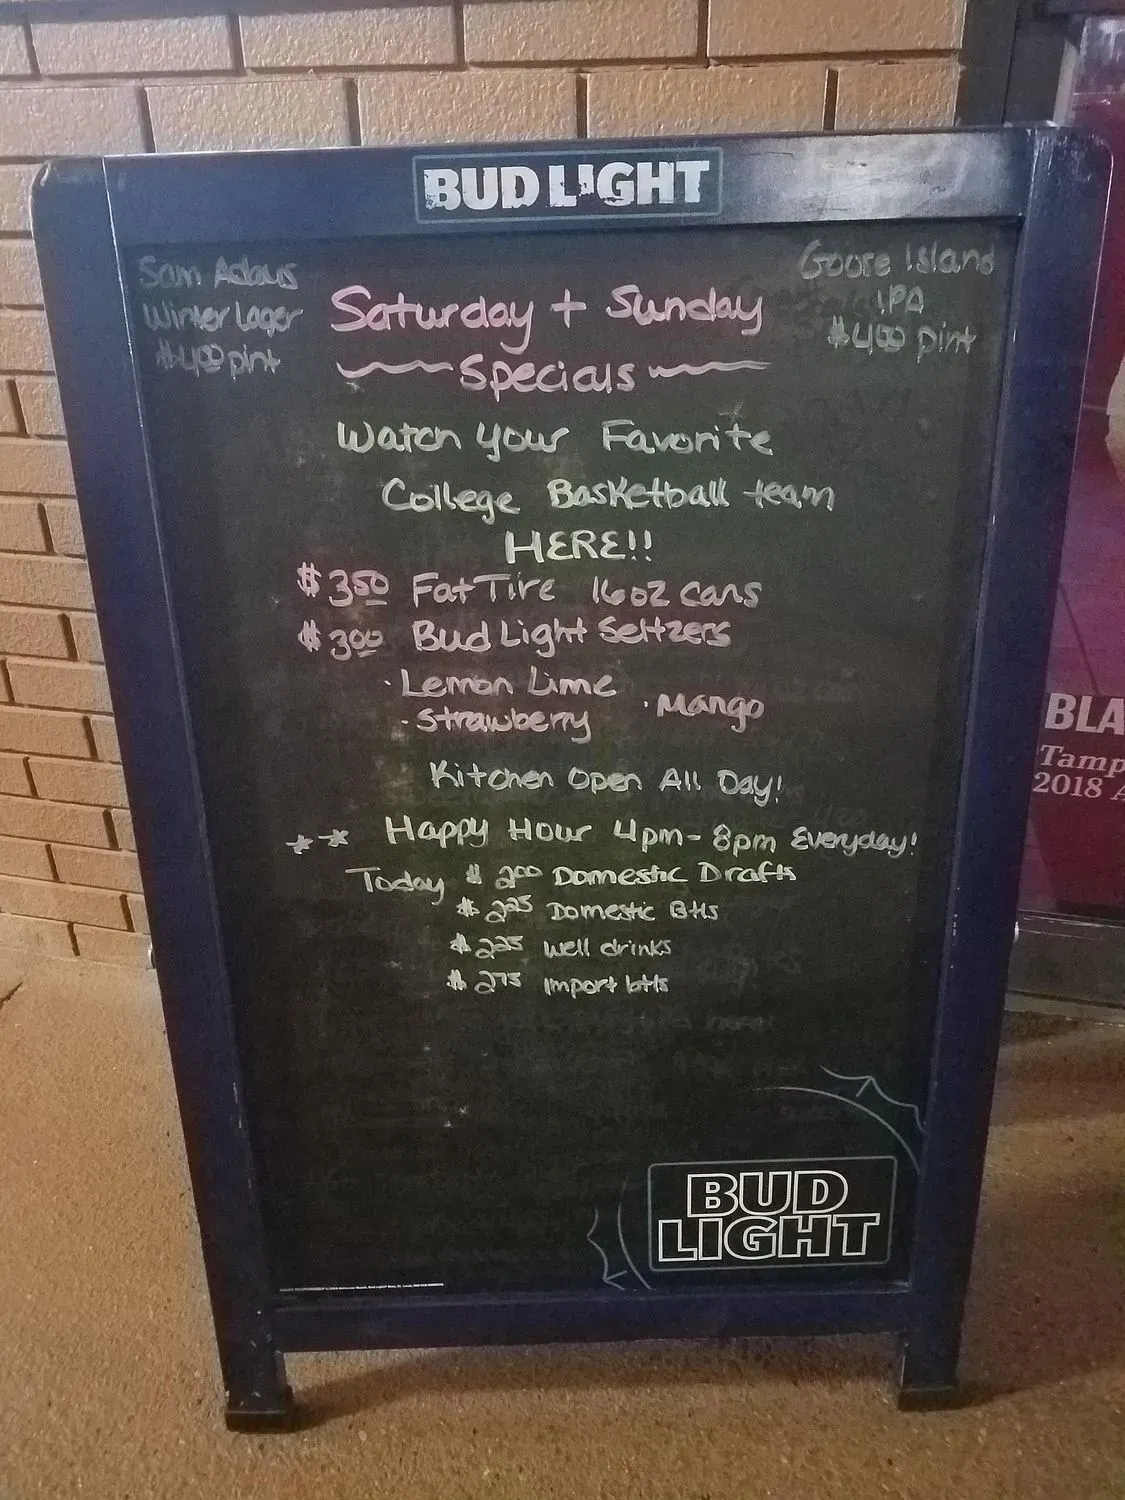 BUD LIGHT
Sam Adams
Winter Lager
$4.00 pint
Goose Island
IPA
$4.00 pint
Saturday + Sunday
Specials
Watch your Favorite
College Basketball team
HERE!!
$3.50 Fat Tire 16oz cans
$3.00 Bud Light Seltzers
· Lemon Lime
· Mango
· Strawberry
Kitchen Open All Day!
** Happy Hour 4pm-8pm Everyday!
Today $2.00 Domestic Drafts
$2.25 Domestic Btls
$2.25 well drinks
$2.75 Import btls
BUD
LIGHT
BLA
Tamp
2018 A